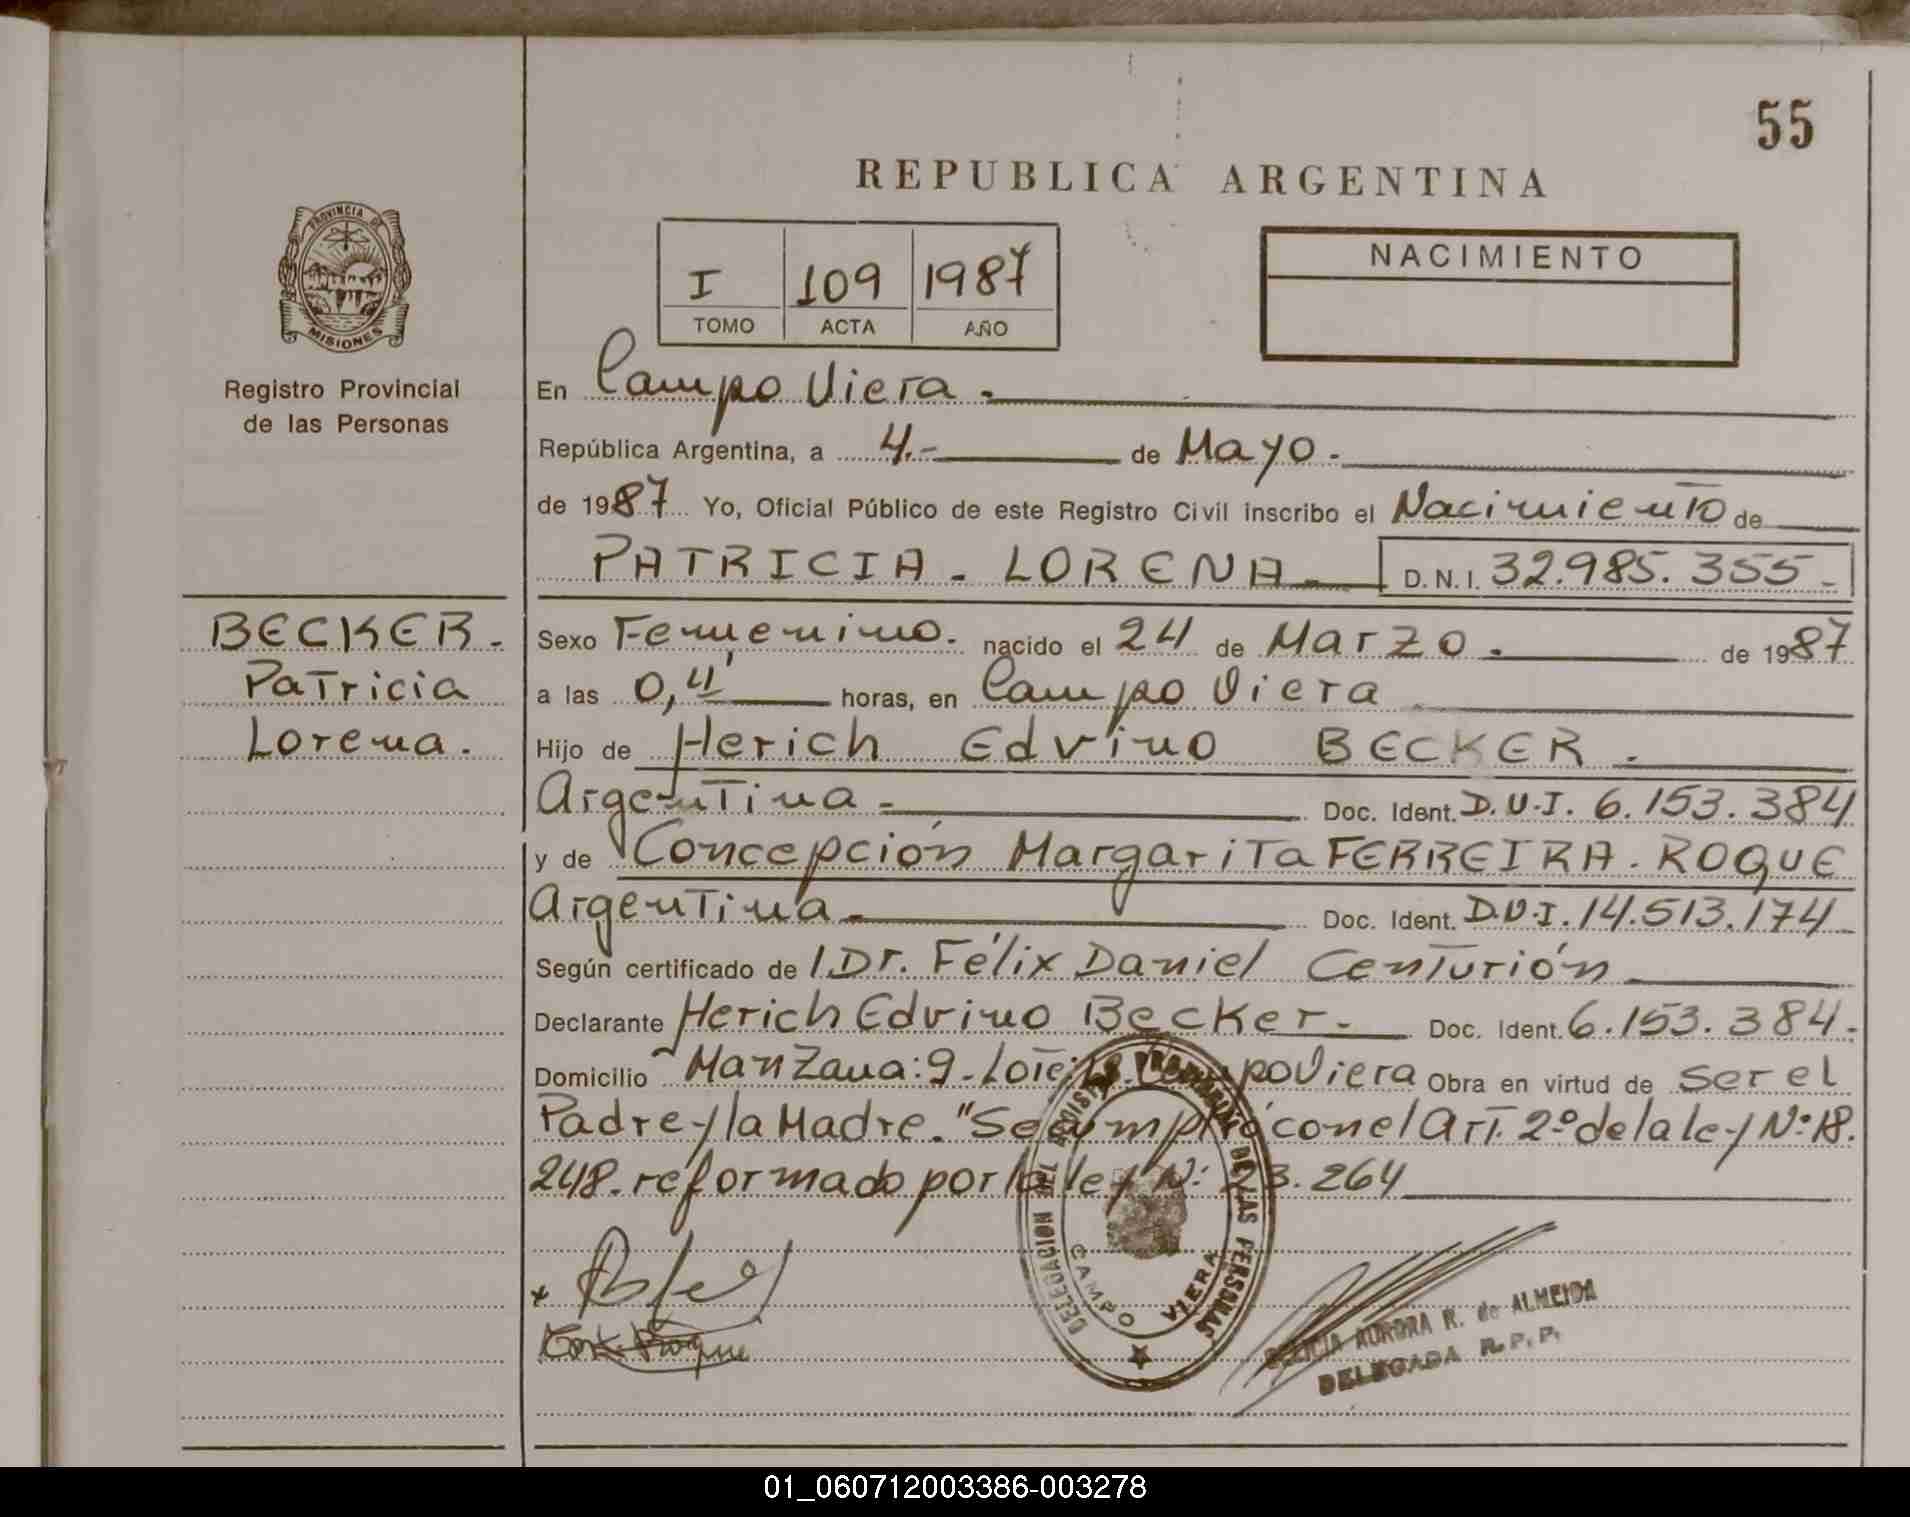 55
REPUBLICA ARGENTINA
PROVINCIA DE
MISIONES
Registro Provincial
de las Personas
I 109 1987
TOMO ACTA AÑO
NACIMIENTO
En Campo Viera.
República Argentina, a 4.- de Mayo.
de 1987 Yo, Oficial Público de este Registro Civil inscribo el Nacimiento de
PATRICIA - LORENA - D.N.I. 32.985.355-
BECKER.
Patricia
Lorena.
Sexo Femenino. nacido el 24 de Marzo. de 1987
a las 0,4' horas, en Campo Viera
Hijo de Herich Edvino BECKER.
Argentina - Doc. Ident. D.U.I. 6.153.384
y de Concepción Margarita FERREIRA. ROQUE
Argentina - Doc. Ident. D.U.I. 14.513.174
Según certificado de l.Dr. Félix Daniel Centurión
Declarante Herich Edvino Becker. Doc. Ident. 6.153.384.
Domicilio Manzana: 9. Lote: Campo Viera Obra en virtud de ser el
Padre y la Madre. "Se cumplió con el Art. 2º de la ley Nº 18.
248. reformado por la ley Nº 23.264
DELEGACION DEL REGISTRO PROVINCIAL DE LAS PERSONAS
CAMPO VIERA
Roque
AURORA R. de ALMEIDA
DELEGADA R.P.P.
01_060712003386-003278